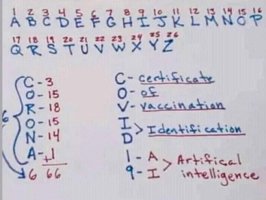 1 2 3 4 5 6 7 8 9 10 11 12 13 14 15 16
A B C D E F G H I J K L M N O P
17 18 19 20 21 22 23 24 25 26
Q R S T U V W X Y Z
C-3
O-15
R-18
O-15
N-14
A-+1
6
6 66
C- certificate
O- of
V- vaccination
I
D > Identification
1 - A
9 - I > Artifical intelligence